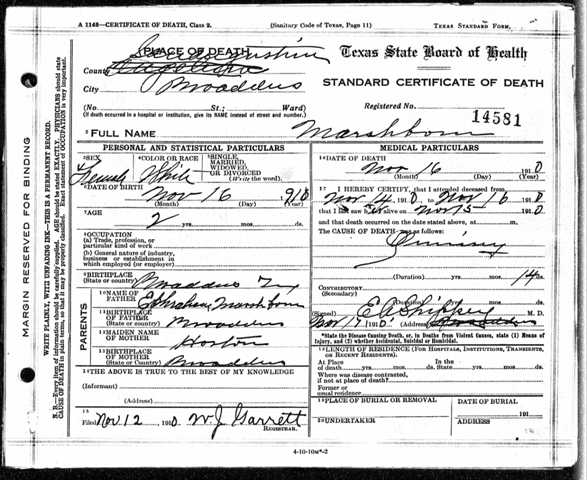 A 1148—CERTIFICATE OF DEATH, Class 2. (Sanitary Code of Texas, Page 11) TEXAS STANDARD FORM.
PLACE OF DEATH Texas State Board of Health
County
City Broaddus STANDARD CERTIFICATE OF DEATH
(No St.; Ward) Registered No. 14581
(If death occurred in a hospital or institution, give its NAME instead of street and number.)
FULL NAME Marshborn
PERSONAL AND STATISTICAL PARTICULARS
SEX COLOR OR RACE SINGLE, MARRIED, WIDOWED, OR DIVORCED (Write the word)
Female White
DATE OF BIRTH Nov 16 1910
(Month) (Day) (Year)
AGE 2 yrs. mos. ds.
OCCUPATION
(a) Trade, profession, or particular kind of work
(b) General nature of industry, business or establishment in which employed (or employer)
BIRTHPLACE (State or country) Broaddus Tex
PARENTS
NAME OF FATHER Ephraham Marshborn
BIRTHPLACE OF FATHER (State or country) Broaddus
MAIDEN NAME OF MOTHER Horton
BIRTHPLACE OF MOTHER (State or Country) Broaddus
THE ABOVE IS TRUE TO THE BEST OF MY KNOWLEDGE
(Informant)
(Address)
Filed Nov 12 1910 W. J. Garrett
REGISTRAR.
MEDICAL PARTICULARS
DATE OF DEATH
Nov 16 1910
(Month) (Day) (Year)
I HEREBY CERTIFY, that I attended deceased from
Nov 14 1910 to Nov 16 1910
that I last saw alive on Nov 15 1910
and that death occurred on the date stated above, at m.
The CAUSE OF DEATH was as follows:
(Duration) yrs. mos. ds.
CONTRIBUTORY
(Secondary)
(Signed) M. D.
Nov 17 1910 (Address) Broaddus
*State the Disease Causing Death, or, in Deaths from Violent Causes, state (1) Means of Injury, and (2) whether Accidental, Suicidal or Homicidal.
LENGTH OF RESIDENCE (FOR HOSPITALS, INSTITUTIONS, TRANSIENTS, OR RECENT RESIDENTS).
At Place of Death yrs. mos. ds. State yrs. mos. ds.
Where was disease contracted, if not at place of death?
Former or usual residence
PLACE OF BURIAL OR REMOVAL DATE OF BURIAL
191
UNDERTAKER ADDRESS
4-10-10M-2
MARGIN RESERVED FOR BINDING
WRITE PLAINLY, WITH UNFADING INK—THIS IS A PERMANENT RECORD.
N. B.—Every item of information should be carefully supplied. AGE should be stated EXACTLY. PHYSICIANS should state CAUSE OF DEATH in plain terms, so that it may be properly classified. Exact statement of OCCUPATION is very important.